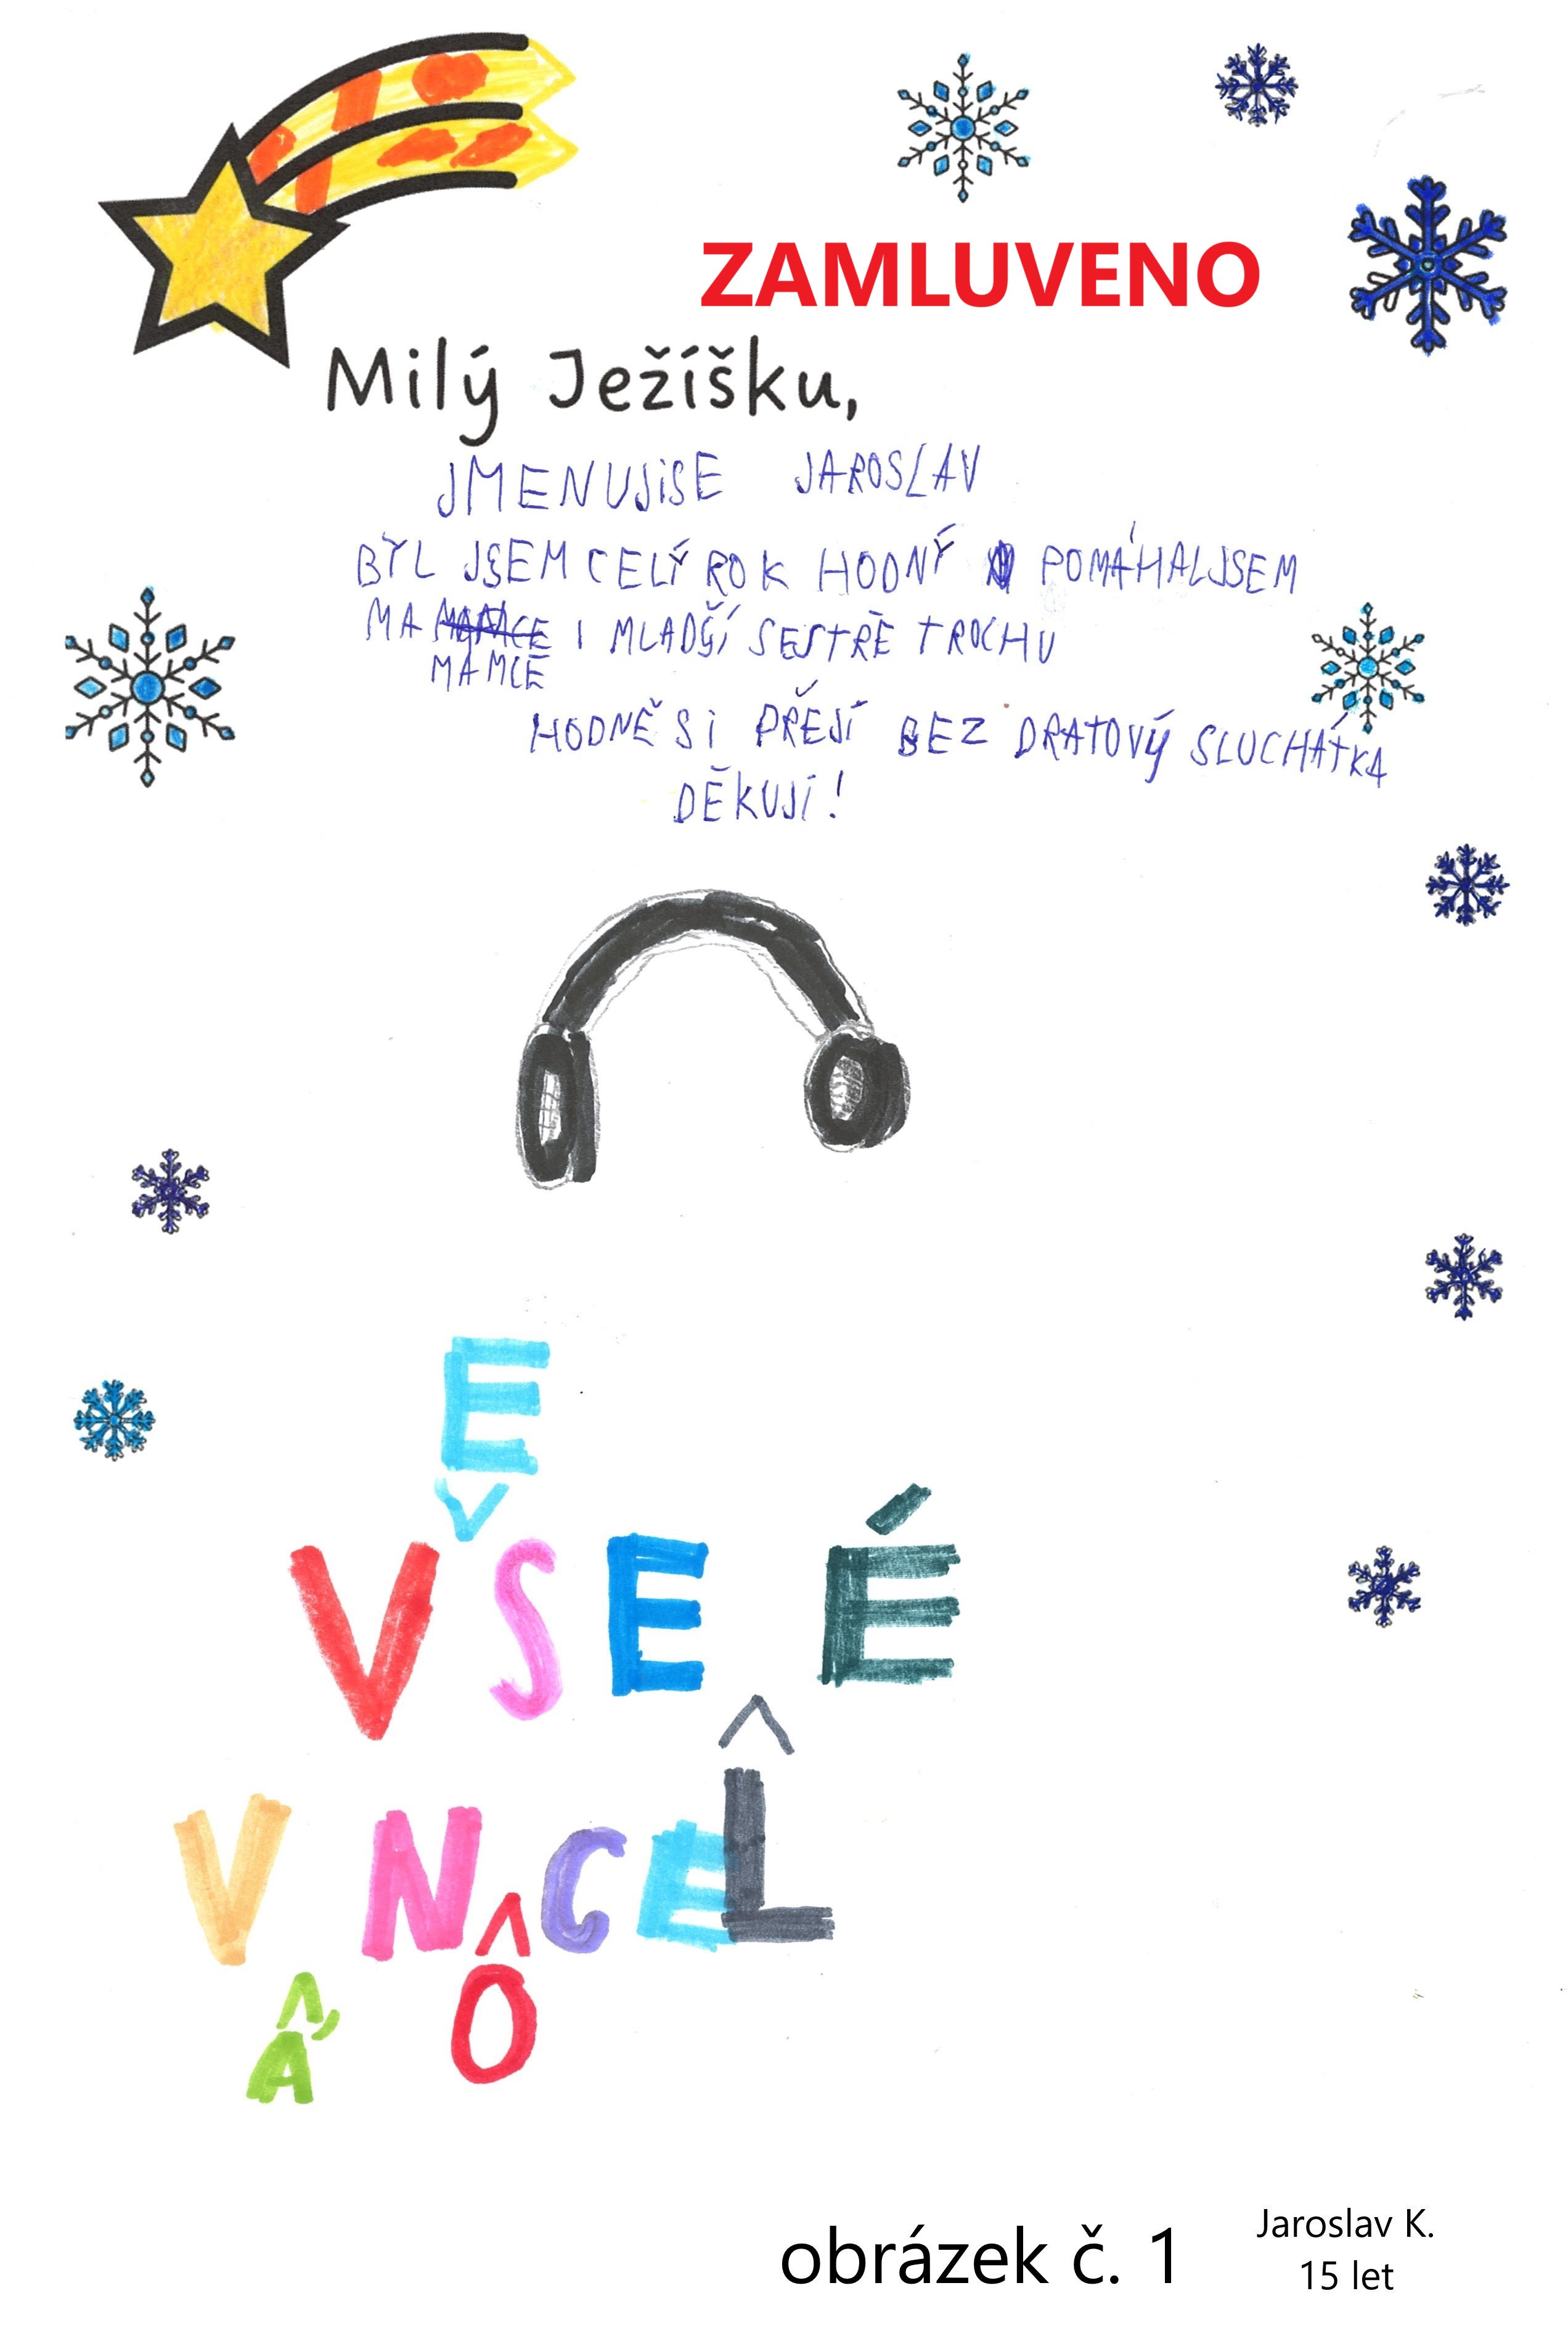 ZAMLUVENO
Milý Ježíšku,
JMENUJiSE JAROSLAV
BYL JSEM CELÝ ROK HODNÝ POMÁHALJSEM
MA I MLADŠÍ SESTŘE TROCHU
MAMCE
HODNĚ Si PŘEJÍ BEZ DRATOVÝ SLUCHÁTKA
DĚKUJÍ!
E
VŠE É
V N C E L̂
Â Ô
obrázek č. 1
Jaroslav K.
15 let